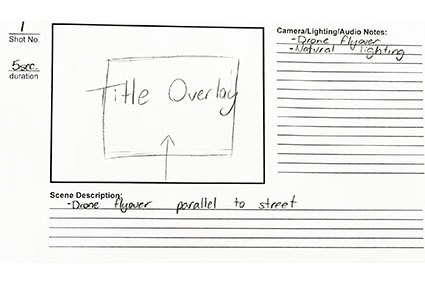 1
Shot No.
5sec.
duration
Title Overlay
Camera/Lighting/Audio Notes:
-Drone flyover
-Natural lighting
Scene Description:
-Drone flyover parallel to street